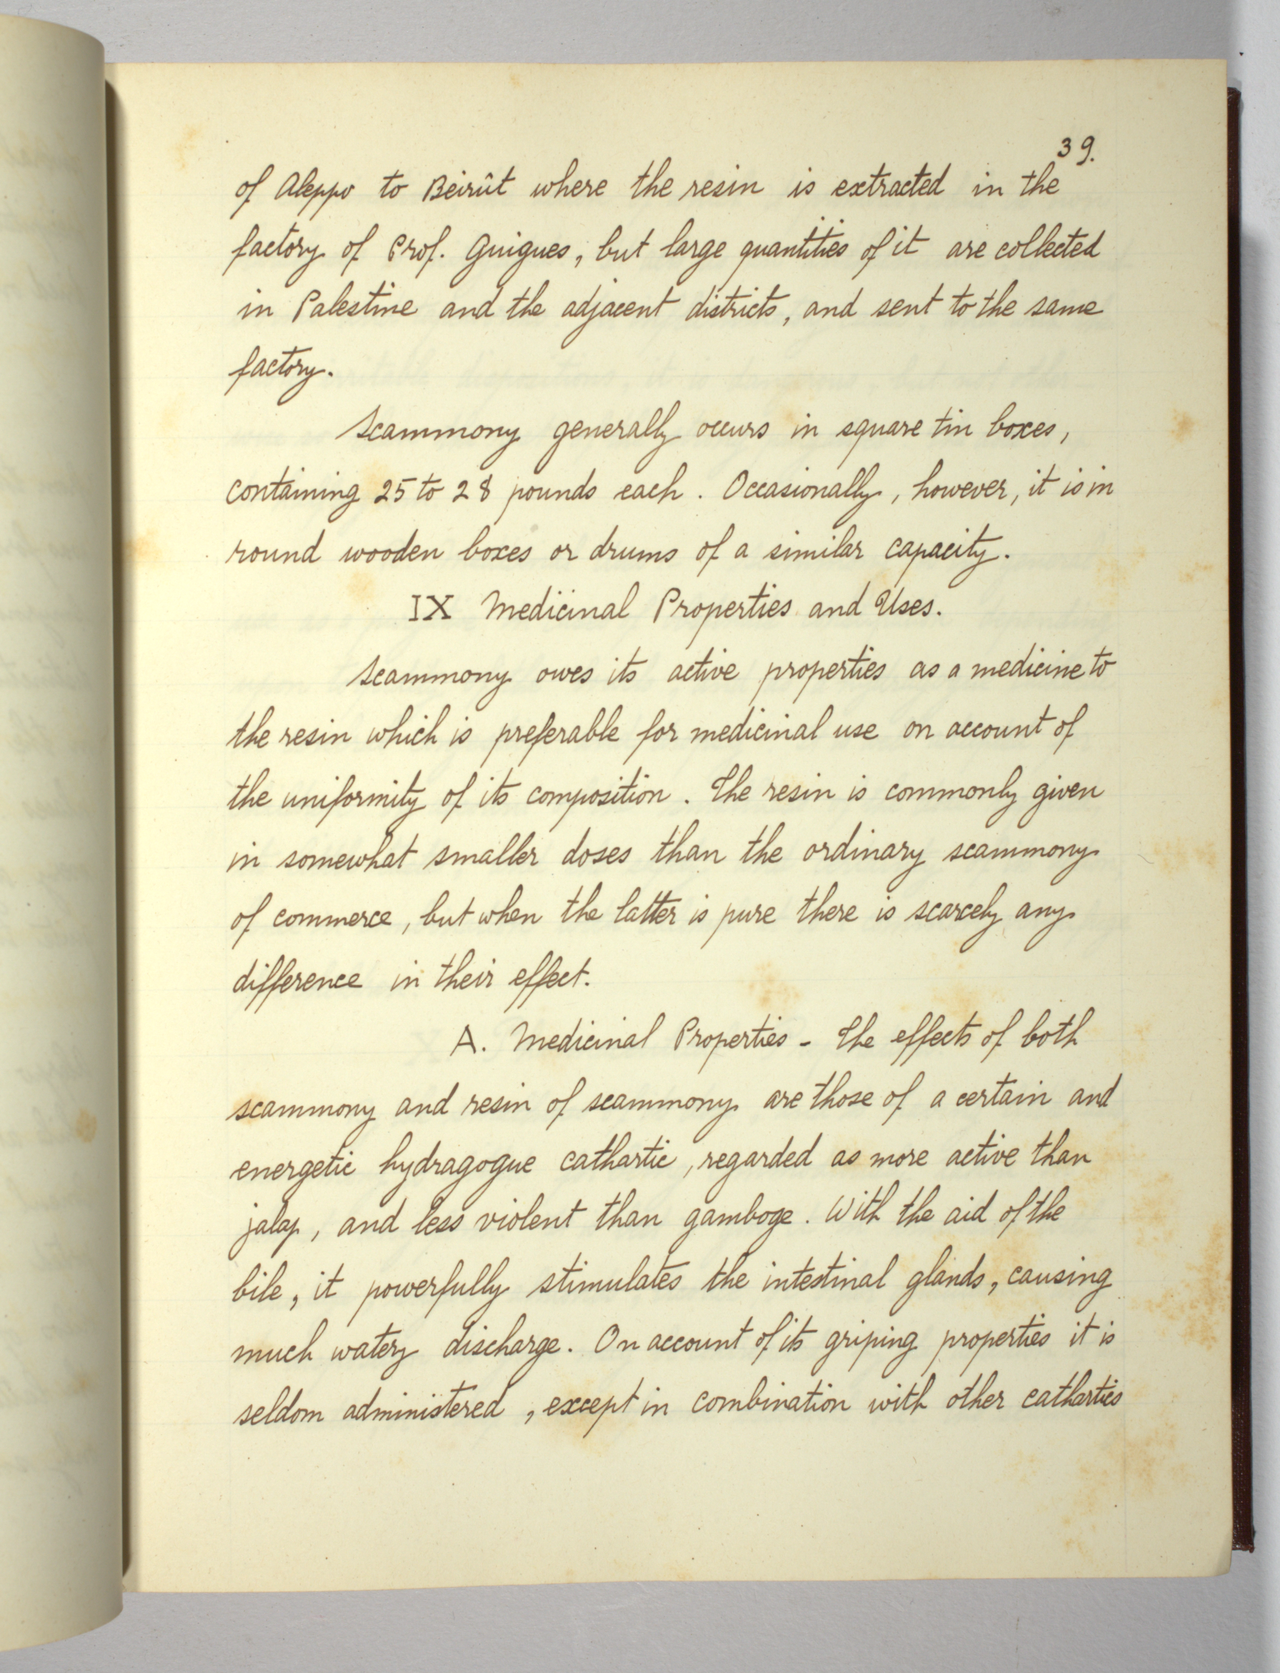 39.
of Aleppo to Beirût where the resin is extracted in the
factory of Prof. Guigues, but large quantities of it are collected
in Palestine and the adjacent districts, and sent to the same
factory.
Scammony generally occurs in square tin boxes,
containing 25 to 28 pounds each. Occasionally, however, it is in
round wooden boxes or drums of a similar capacity.
IX Medicinal Properties and Uses.
Scammony owes its active properties as a medicine to
the resin which is preferable for medicinal use on account of
the uniformity of its composition. The resin is commonly given
in somewhat smaller doses than the ordinary scammony
of commerce, but when the latter is pure there is scarcely any
difference in their effect.
A. Medicinal Properties - The effects of both
scammony and resin of scammony are those of a certain and
energetic hydragogue cathartic, regarded as more active than
jalap, and less violent than gamboge. With the aid of the
bile, it powerfully stimulates the intestinal glands, causing
much watery discharge. On account of its griping properties it is
seldom administered, except in combination with other cathartics